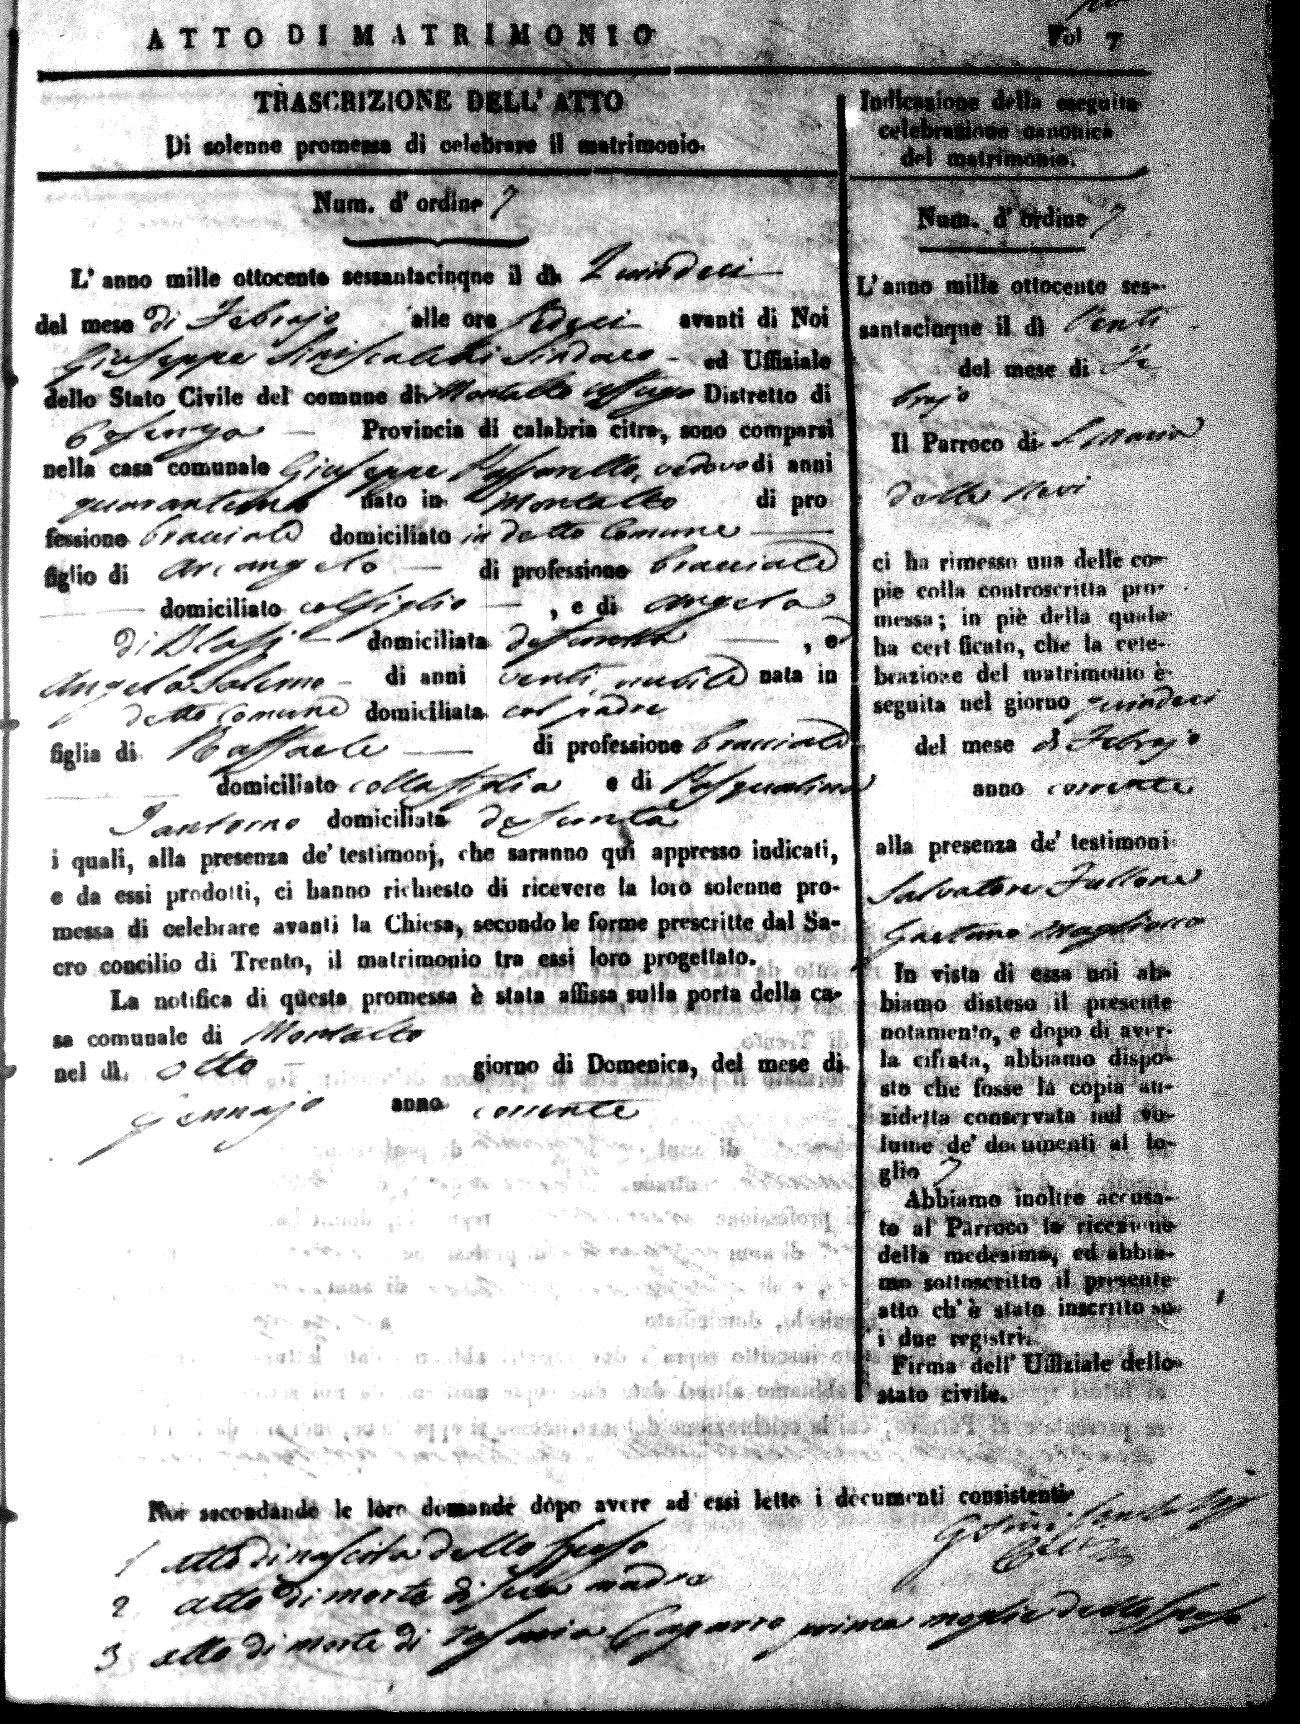 ATTO DI MATRIMONIO
Fol 7
TRASCRIZIONE DELL' ATTO
Di solenne promessa di celebrare il matrimonio.
Num. d' ordine 7
L' anno mille ottocento sessantacinque il dì Quindeci
del mese di Febrajo alle ore Sedeci avanti di Noi
Giuseppe Siniscalchi Sindaco ed Uffiziale
dello Stato Civile del comune di Montalto Uffugo Distretto di
Cosenza Provincia di calabria citra, sono comparsi
nella casa comunale Giuseppe Passarello, vedovo di anni
quarantuno nato in Montalto di pro
fessione bracciale domiciliato in detto Comune
figlio di Arcangelo di professione bracciale
domiciliato col figlio , e di Angela
di Blasi domiciliata defunta , e
Angela Salerno di anni venti, nubile nata in
detto Comune domiciliata col padre
figlia di Raffaele di professione bracciale
domiciliato colla figlia e di Pasqualina
Santorno domiciliata defunta
i quali, alla presenza de' testimonj, che saranno quì appresso indicati,
e da essi prodotti, ci hanno richiesto di ricevere la loro solenne pro-
messa di celebrare avanti la Chiesa, secondo le forme prescritte dal Sa-
cro concilio di Trento, il matrimonio tra essi loro progettato.
La notifica di questa promessa è stata affissa sulla porta della ca-
sa comunale di Montalto
nel dì otto giorno di Domenica, del mese di
Gennajo anno corrente
Indicazione della eseguita
celebrazione canonica
del matrimonio.
Num. d' ordine 7
L' anno mille ottocento ses-
santacinque il dì Venti
del mese di Fe
brajo
Il Parroco di S. Maria
della Nevi
ci ha rimesso una delle co-
pie colla controscritta pro-
messa; in piè della quale
ha certificato, che la cele-
brazione del matrimonio è
seguita nel giorno quindeci
del mese di Febrajo
anno corrente
alla presenza de' testimoni
Salvatore Fullone
Gaetano Magliocco
In vista di essa noi ab-
biamo disteso il presente
notamento, e dopo di aver-
la cifrata, abbiamo dispo-
sto che fosse la copia an-
zidetta conservata nel vo-
lume de' documenti al fo-
glio 7
Abbiamo inoltre accusa-
to al Parroco la ricezione
della medesima, ed abbia-
mo sottoscritto il presente
atto ch' è stato inscritto su
i due registri.
Firma dell' Uffiziale dello
stato civile.
Noi secondando le loro domande dopo avere ad essi letto i documenti consistenti
1 atto di nascita dello sposo
2 atto di morte di sua madre
3 atto di morte di Rosaria prima moglie dello sposo